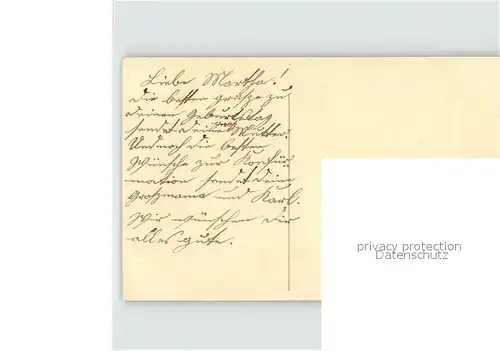 Liebe Martha!
die besten grüße zu
deinen Geburtstag
sendet deine Mutter.
Und noch die besten
Wünsche zur Konfir-
mation sendet deine
Großmama und Karl.
Wir wünschen dir
alles gute.
privacy protection
Datenschutz